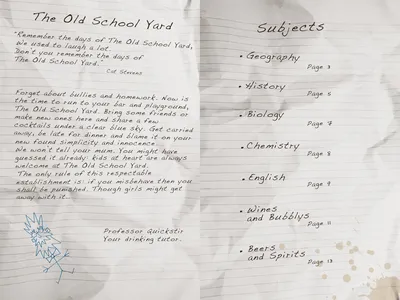 The Old School Yard
"Remember the days of The Old School Yard,
We used to laugh a lot.
Don't you remember the days of
The Old School Yard."
Cat Stevens
Forget about bullies and homework. Now is
the time to run to your bar and playground,
The Old School Yard. Bring some friends or
make new ones here and share a few
cocktails under a clear blue sky. Get carried
away, be late for dinner and blame it on your
new found simplicity and innocence.
We won't tell your mum. You might have
guessed it already: kids at heart are always
welcome at The Old School Yard.
The only rule of this respectable
establishment is: if you misbehave then you
shall be punished. Though girls might get
away with it..
Professor Quickstir
Your drinking tutor.
Subjects
• Geography
Page. 3
• History
Page. 5
• Biology
Page 7
• Chemistry
Page. 8
• English
Page. 9
• Wines
and Bubblys
Page. 11
• Beers
and Spirits
Page. 13